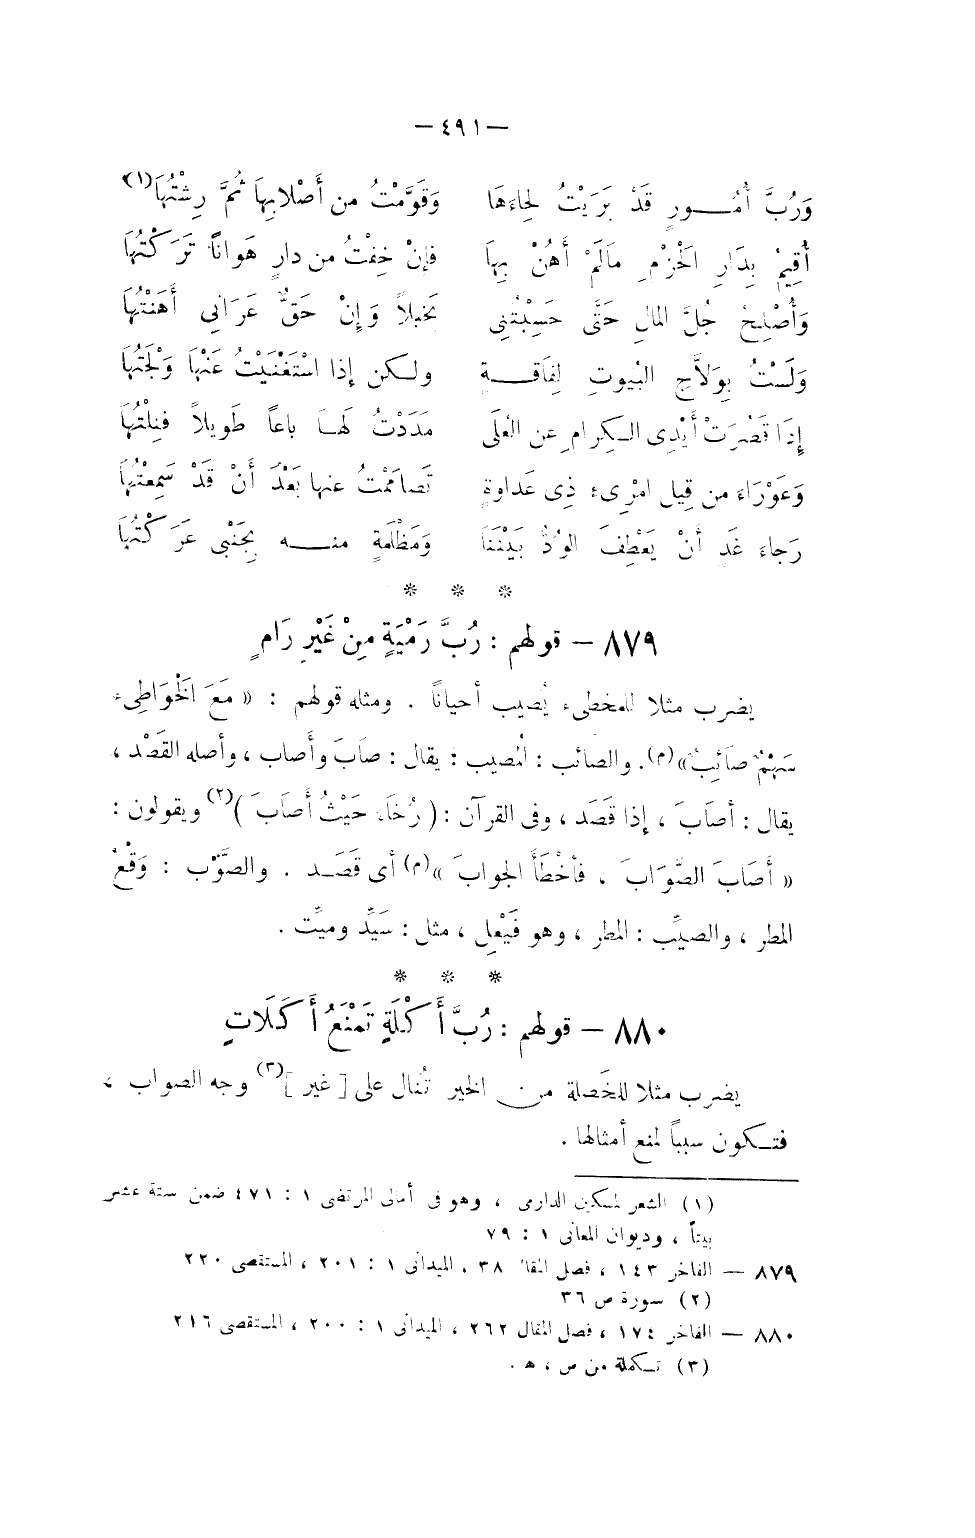 — ٤٩١ —
وَرُبَّ أُمُـــورٍ قَدْ بَرَيْتُ لِحاءَهَا وَقَوَّمْتُ من أَصْلابِهَا ثُمَّ رِشْتُهَا(١)
أُقِيمُ بِدَارِ الحَزْمِ مَالَمْ أُهَنْ بِهَا فإِنْ خِفْتُ من دارٍ هَواناً تَرَكْتُهَا
وَأُصْلِحُ جُلَّ المالِ حَتَّى حَسِبْتُنِى بَخِيلاً وَإِنْ حَقٌّ عَرَانِى أَهَنْتُهَا
وَلَسْتُ بِوَلاَّجِ البُيوتِ لِفَاقَـــةٍ ولكن إذا اسْتَغْنَيْتُ عَنْهَا وَلَجْتُهَا
إِذَا قَصُرَتْ أَيْدِى الكِرامِ عن العُلَى مَدَدْتُ لَهَـا باعاً طَويلاً فَنِلْتُهَا
وَعَوْرَاءَ من قِيلِ امْرِىءٍ ذِى عَداوةٍ تَصامَمْتُ عنها بَعْدَ أَنْ قَدْ سَمِعْتُهَا
رَجاءَ غَدٍ أَنْ يَعْطِفَ الوُدُّ بَيْنَنَا وَمَظْلَمَةٍ منـــه بِجَنْبِى عَرَكْتُهَا
* * *
٨٧٩ — قولهم : رُبَّ رَمْيَةٍ مِنْ غَيْرِ رَامٍ
يضرب مثلا للمخطىء يُصيب أحياناً . ومثله قولهم : « مَعَ الخَوَاطِىء
سَهْمٌ صَائِبٌ»(م). والصائب : المُصيب : يقال : صابَ وأَصاب ، وأصله القَصْد ،
يقال : أصابَ ، إذا قصَد ، وفى القرآن : ( رُخَاءً حَيْثُ أَصَابَ )(٢) ويقولون :
« أَصَابَ الصَّوَابَ ، فأخْطَأَ الجوابَ »(م) أى قَصَـد . والصَّوْب : وَقْعُ
المطر ، والصيِّب : المطر ، وهو فَيْعِل ، مثل : سَيِّد وميِّت .
* * *
٨٨٠ — قولهم : رُبَّ أَكْلَةٍ تَمْنَعُ أَكَلَاتٍ
يضرب مثلا للخَصلة من الخير تُنال على [ غير ](٣) وجه الصواب ،
فتـكون سبباً لمنع أمثالها .
(١) الشعر لمسكين الدارمى ، وهو فى أمالى المرتضى ١ : ٤٧١ ضمن ستة عشر
بيتاً ، وديوان المعانى ١ : ٧٩
٨٧٩ — الفاخر ١٤٣ ، فصل المقال ٣٨ ، الميدانى ١ : ٢٠١ ، المستقصى ٢٢٠
(٢) سورة ص ٣٦
٨٨٠ — الفاخر ١٧٤ ، فصل المقال ٢٦٢ ، الميدانى ١ : ٢٠٠ ، المستقصى ٢١٦
(٣) تـكملة من ص ، هـ .